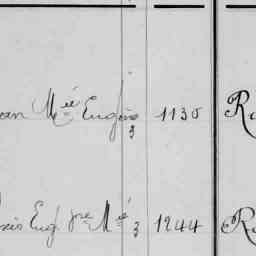 ean Mie Eugène 3 1130 R
xis Eug. Jne Mie 3 1244 R